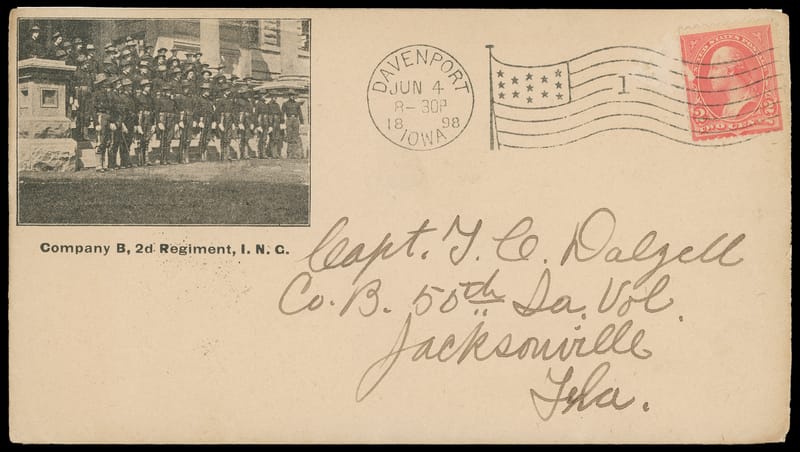 DAVENPORT
JUN 4
8-30P
18 98
IOWA
1
UNITED STATES POSTAGE
2 2
TWO CENTS
Company B, 2d Regiment, I. N. G.
Capt. T. C. Dalzell
Co. B. 50th Ia. Vol.
Jacksonville
Fla.